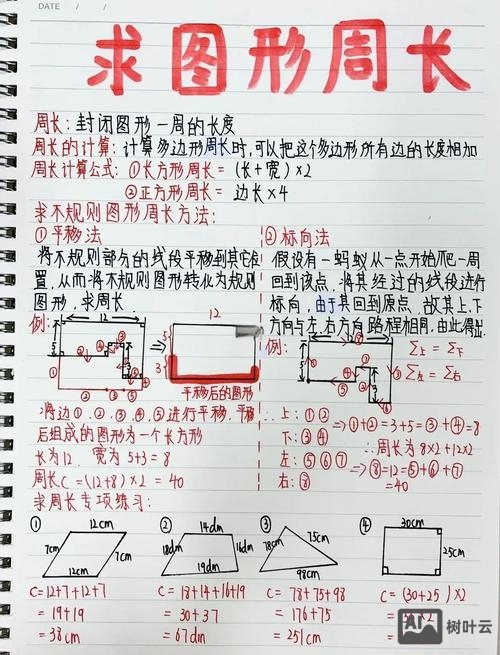 DATE / /
求图形周长
周长：封闭图形一周的长度
周长的计算：计算多边形周长时,可以把这个多边形所有边的长度相加
周长计算公式：①长方形周长＝(长＋宽)×2
②正方形周长＝ 边长×4
求不规则图形周长方法：
①平移法
将不规则部分的线段平移到其它位
置,从而将不规则图形转化为规则
图形,求周长
例：
12
5
3
12
5
3
平移后的图形
将边①、②、③、④、⑤进行平移,平移
后组成的图形为一个长方形
长为12, 宽为5+3=8
周长C=(12+8)×2 = 40
②标向法
假设有一蚂蚁从一点开始爬一周
回到该点,将其经过的线段进行
标向,由于其回到原点,故其上、下
方向与左、右方向路程相同,由此得出.
例：
Σ上 = Σ下
Σ左 = Σ右
上：①②
下：③④
⇒①+②=3+5=③+④=8
左：⑤⑥⑦
右：⑧
⇒⑧=12=⑤+⑥+⑦
∴周长为8×2+12×2
=40
求周长专项练习：
①
12cm
7cm
7cm
12cm
C=12+7+12+7
=19+19
=38cm
②
14dm
18dm
16dm
19dm
C=18+14+16+19
=30+37
=67dm
③
78cm
75cm
98cm
C=78+75+98
=176+75
=251cm
④
30cm
25cm
C=(30+25)×2
树叶云